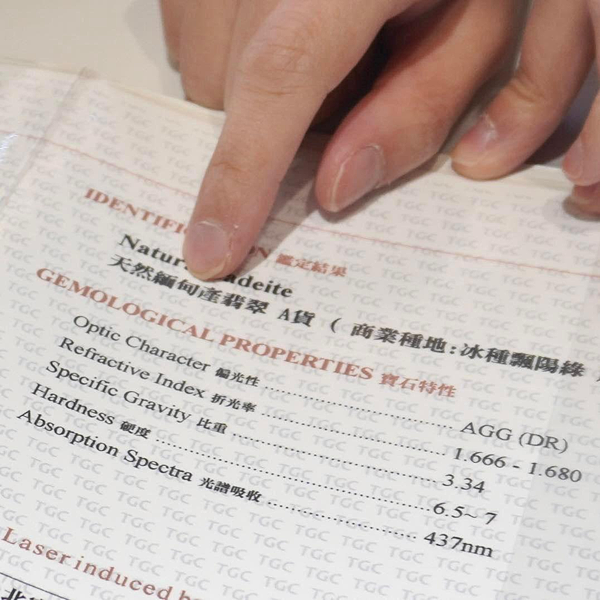 IDENTIFI ON 鑑定結果
Natur deite
天然緬甸產翡翠 A貨 ( 商業種地:冰種飄陽綠
GEMOLOGICAL PROPERTIES 寶石特性
Optic Character 偏光性 AGG (DR)
Refractive Index 折光率 1.666 - 1.680
Specific Gravity 比重 3.34
Hardness 硬度 6.5~7
Absorption Spectra 光譜吸收 437nm
Laser induced b
北